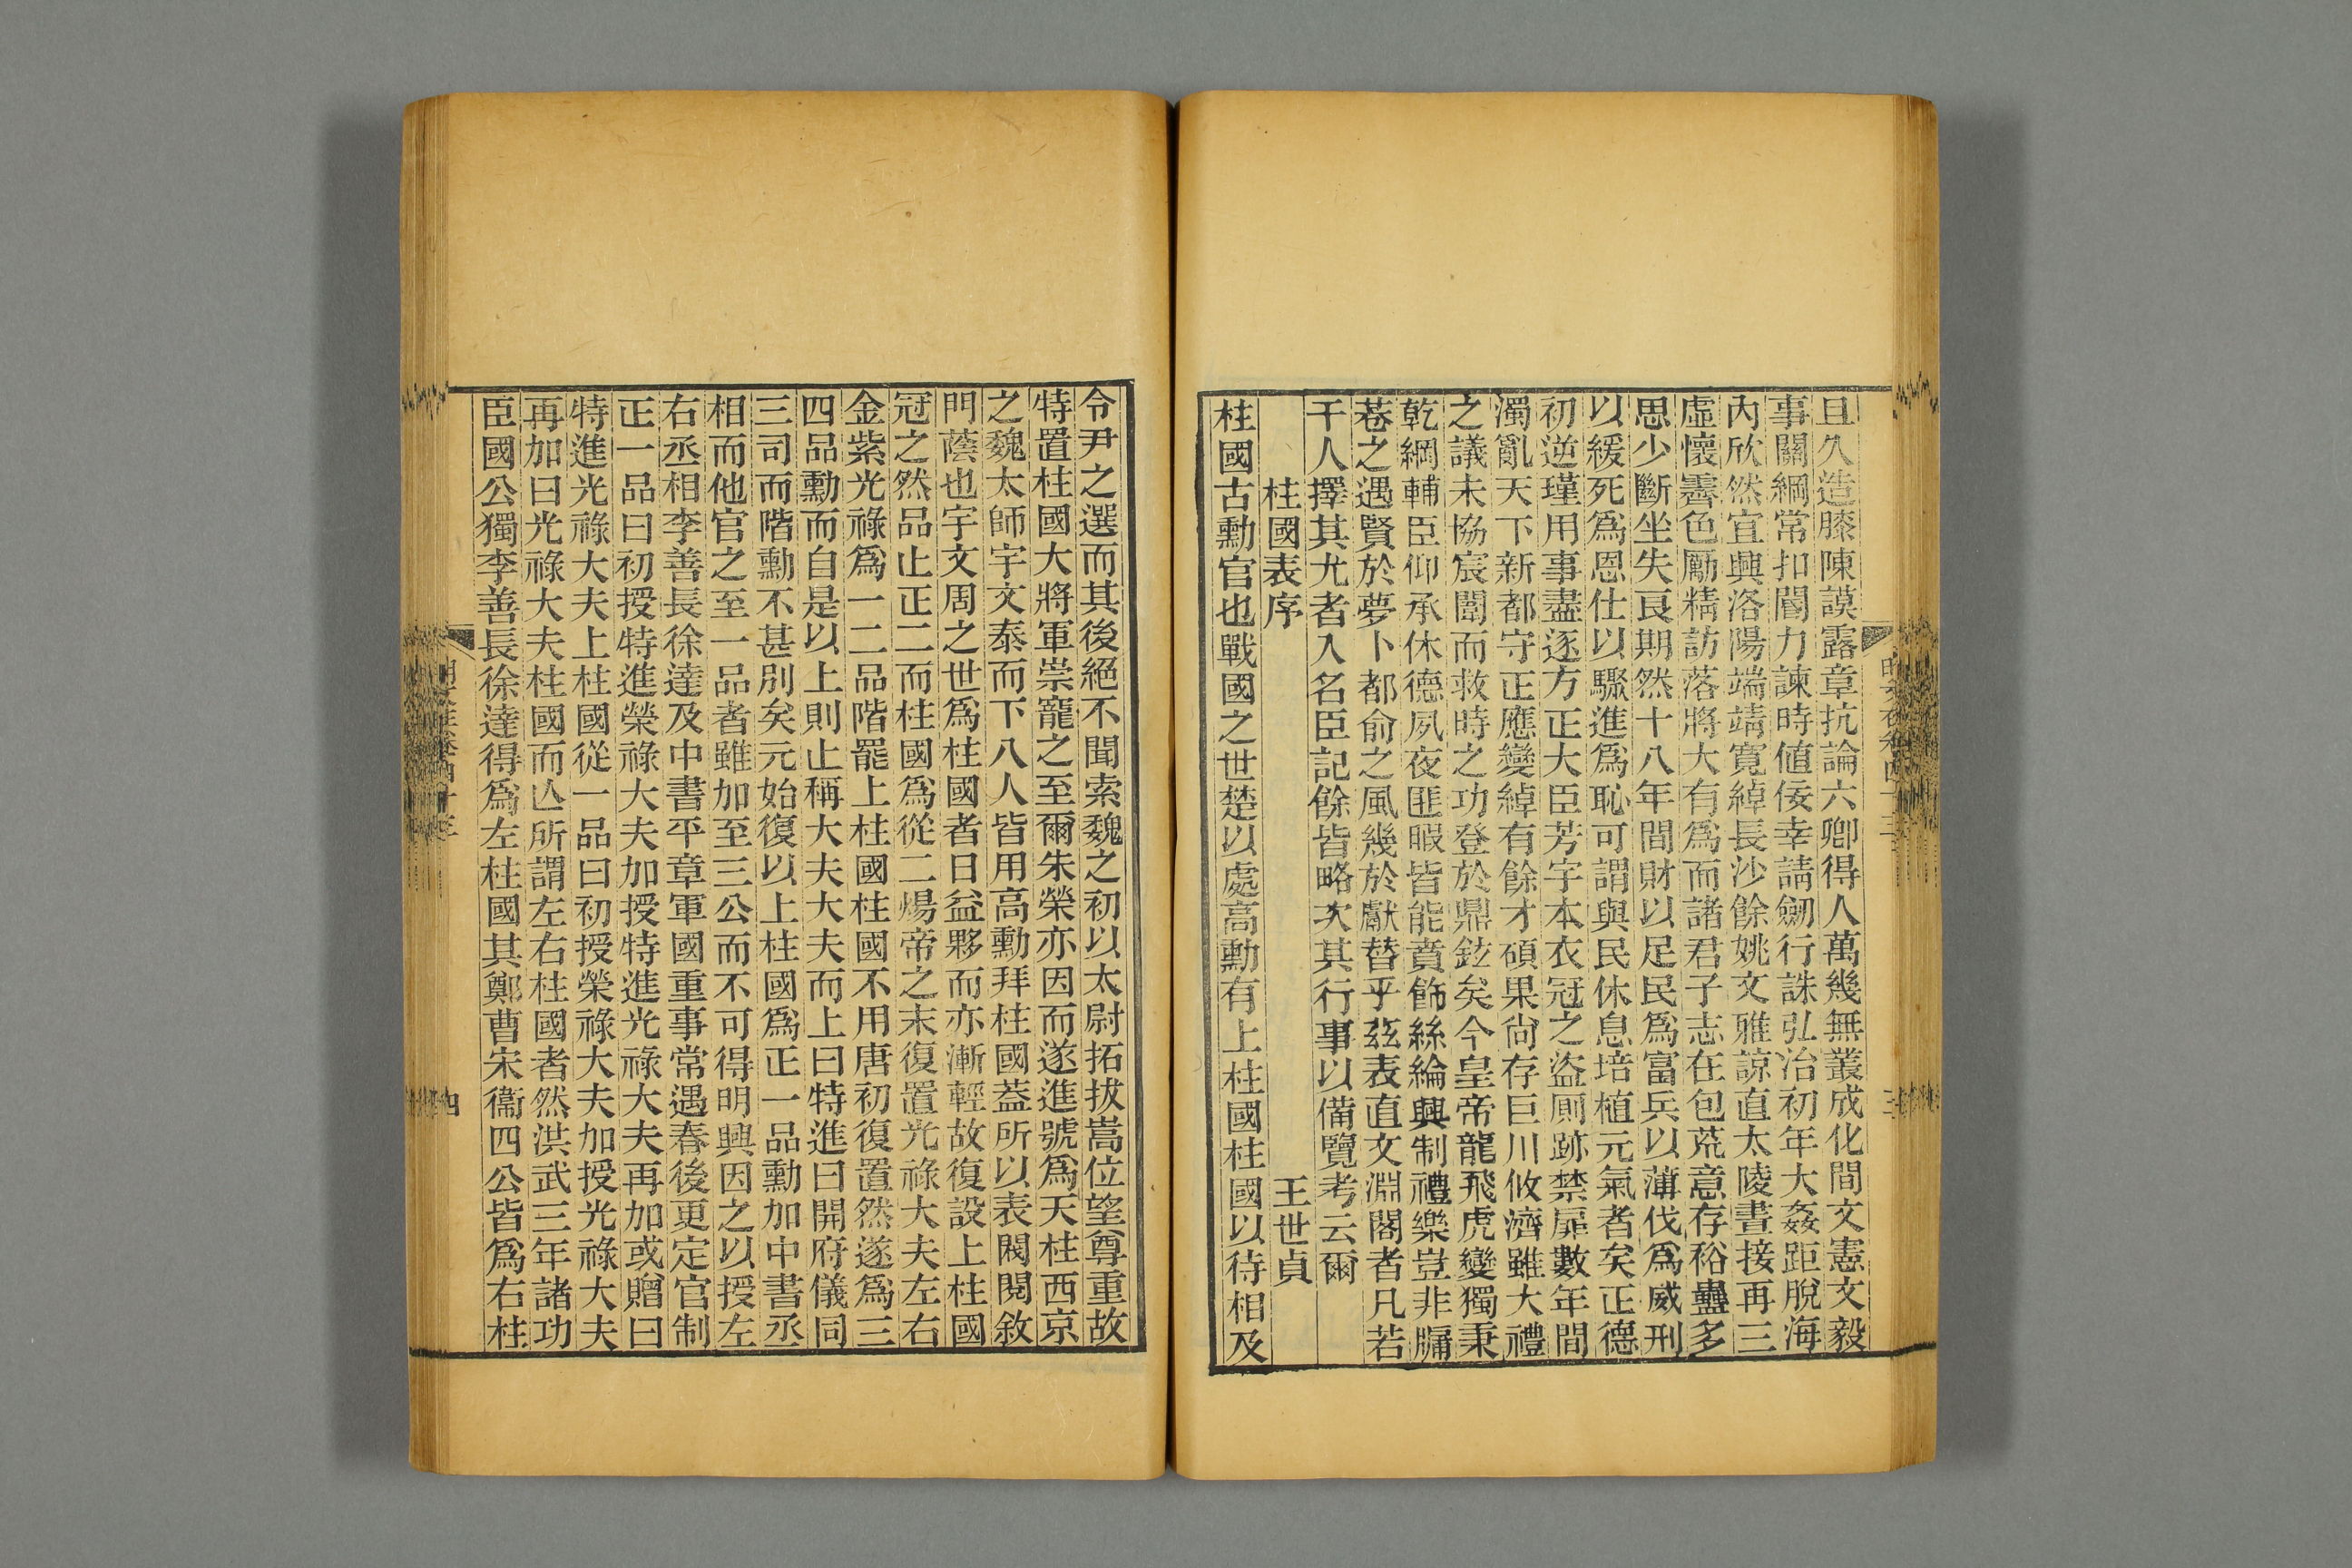 且久造膝陳謨露章抗論六卿得人萬幾無叢成化間文憲文毅
事關綱常扣閽力諫時値佞幸請劒行誅弘治初年大姦距脫海
內欣然宜興洛陽端靖寬綽長沙餘姚文雅諒直太陵晝接再三
虛懷霽色勵精訪落將大有爲而諸君子志在包荒意存裕蠱多
思少斷坐失良期然十八年間財以足民爲富兵以薄伐爲威刑
以緩死爲恩仕以驟進爲恥可謂與民休息培植元氣者矣正德
初逆瑾用事盡逐方正大臣芳宇本衣冠之盜厠跡禁扉數年間
濁亂天下新都守正應變綽有餘才碩果尙存巨川攸濟雖大禮
之議未協宸闈而救時之功登於鼎鉉矣今皇帝龍飛虎變獨秉
乾綱輔臣仰承休德夙夜匪暇皆能賁飾絲綸興制禮樂豈非牖
巷之遇賢於夢卜都俞之風幾於獻替乎茲表直文淵閣者凡若
干人擇其尤者入名臣記餘皆略次其行事以備覽考云爾
柱國表序 王世貞
柱國古勳官也戰國之世楚以處高勳有上柱國柱國以待相及
令尹之選而其後絕不聞索魏之初以太尉拓拔嵩位望尊重故
特置柱國大將軍崇寵之至爾朱榮亦因而遂進號爲天柱西京
之魏太師宇文泰而下八人皆用高勳拜柱國蓋所以表閥閱敘
門蔭也宇文周之世爲柱國者日益夥而亦漸輕故復設上柱國
冠之然品止正二而柱國爲從二煬帝之末復置光祿大夫左右
金紫光祿爲一二品階罷上柱國柱國不用唐初復置然遂爲三
四品勳而自是以上則止稱大夫大夫而上曰特進曰開府儀同
三司而階勳不甚別矣元始復以上柱國爲正一品勳加中書丞
相而他官之至一品者雖加至三公而不可得明興因之以授左
右丞相李善長徐達及中書平章軍國重事常遇春後更定官制
正一品曰初授特進榮祿大夫加授特進光祿大夫再加或贈曰
特進光祿大夫上柱國從一品曰初授榮祿大夫加授光祿大夫
再加曰光祿大夫柱國而亾所謂左右柱國者然洪武三年諸功
臣國公獨李善長徐達得爲左柱國其鄭曹宋衞四公皆爲右柱
四